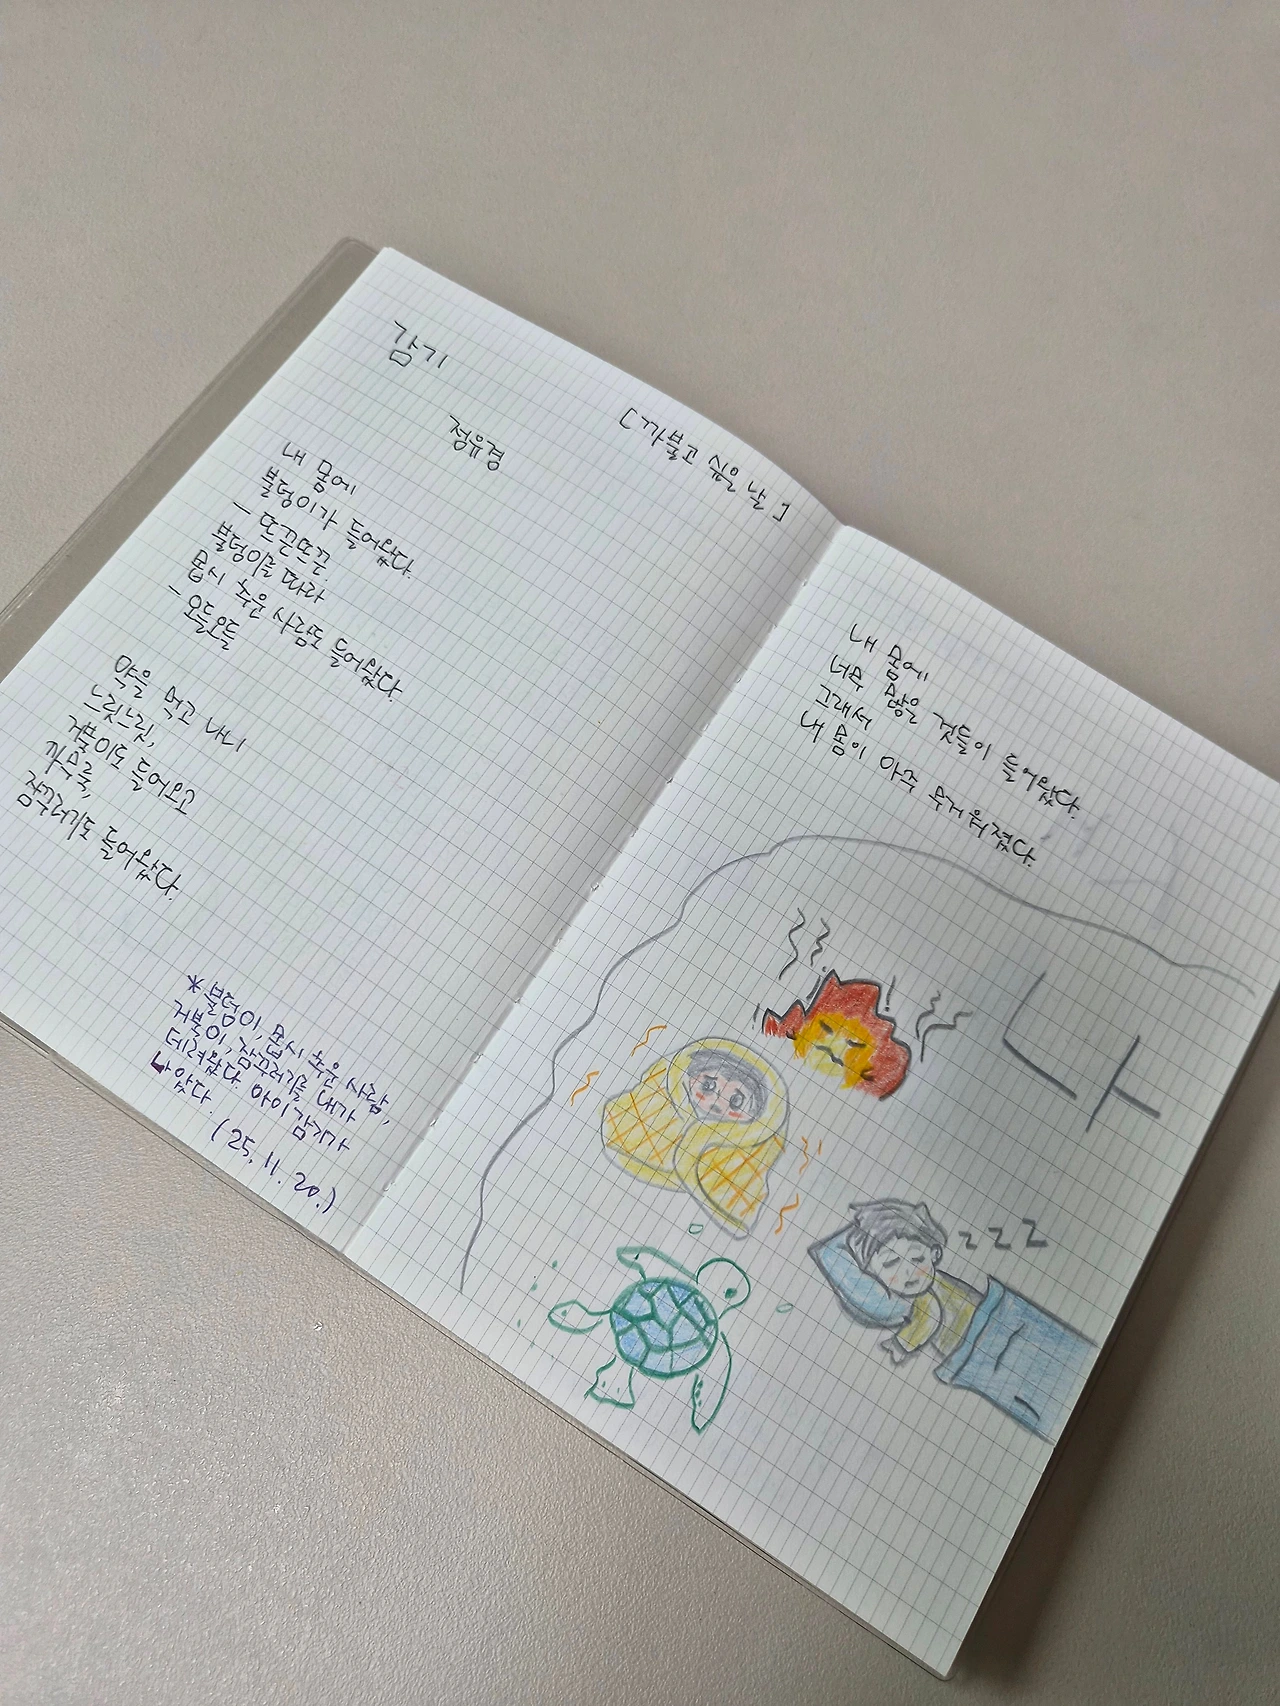 감기
[까불고 싶은 날]
정유경
내 몸에
불덩이가 들어왔다.
- 뜨끈뜨끈.
불덩이를 따라
몹시 추운 사람도 들어왔다.
- 오들오들
약을 먹고 나니
느릿느릿,
거북이도 들어오고
까무룩,
잠꾸러기도 들어왔다.
* 불덩이, 몹시 추운 사람,
거북이, 잠꾸러기를 내가
데려왔다. 아이 감기가
나았다.
(25. 11. 20.)
내 몸에
너무 많은 것들이 들어왔다.
그래서
내 몸이 아주 무거워졌다.
나
zzz